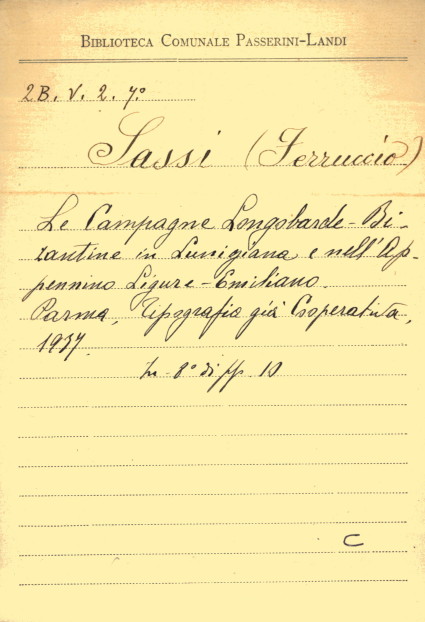 BIBLIOTECA COMUNALE PASSERINI-LANDI
2B. V. 2. 7º
Sassi (Ferruccio)
Le Campagne Longobarde-Bi-
zantine in Lunigiana e nell'Ap-
pennino Ligure-Emiliano.
Parma, Tipografia già Cooperativa,
1937.
In-8º di pp. 10
C